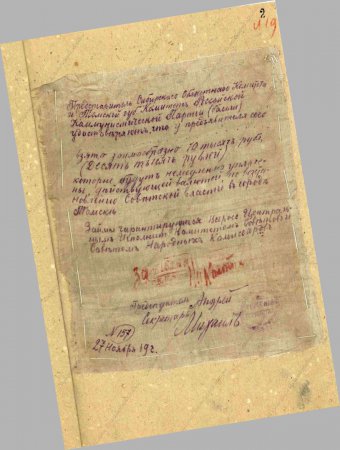 2
Представитель Сибирского Областного Комитета
и Томский губ. Комитета Российской
Коммунистической Партии (больш.)
удостоверяют, что у предъявителя сего
взято заимообразно 10 тысяч руб.
(Десять тысяч рублей)
которые будут немедленно уплаче-
ны действующей валютой по восста-
новлению Советской власти в городе
Томске.
Займы гарантируются Всерос. Централь-
ным Исполнит. Комитетом Советов и
Советом Народных Комиссаров
Председатель Андрей
Секретарь Михаил
N 157
27 Ноября 19 г.